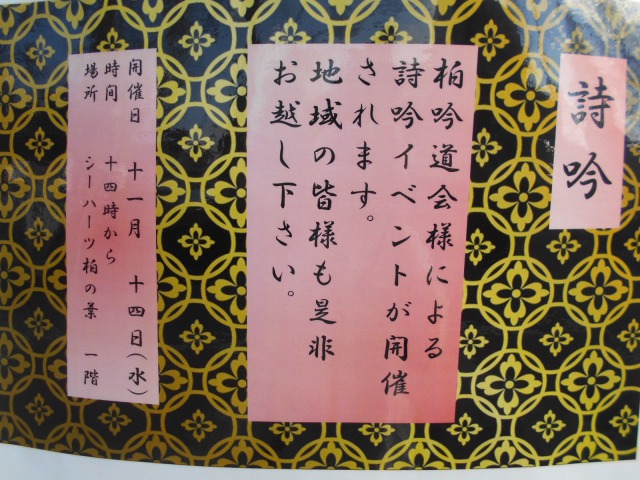 詩吟
柏吟道会様による
詩吟イベントが開催
されます。
地域の皆様も是非
お越し下さい。
開催日 十一月 十四日(水)
時間 十四時から
場所 シーハーツ柏の葉 一階